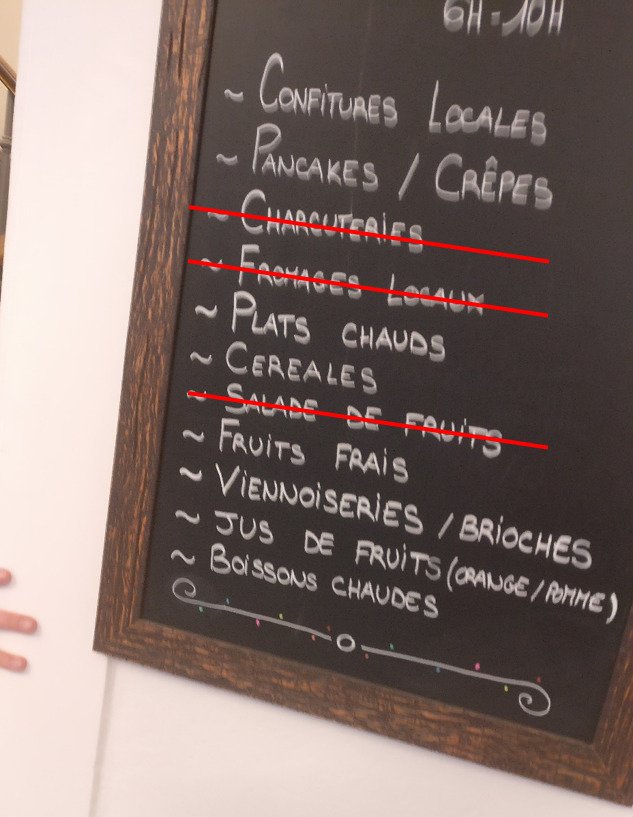 6H-10H
~ CONFITURES LOCALES
~ PANCAKES / CRÊPES
~ CHARCUTERIES
~ FROMAGES LOCAUX
~ PLATS CHAUDS
~ CEREALES
~ SALADE DE FRUITS
~ FRUITS FRAIS
~ VIENNOISERIES / BRIOCHES
~ JUS DE FRUITS (ORANGE / POMME)
~ BOISSONS CHAUDES